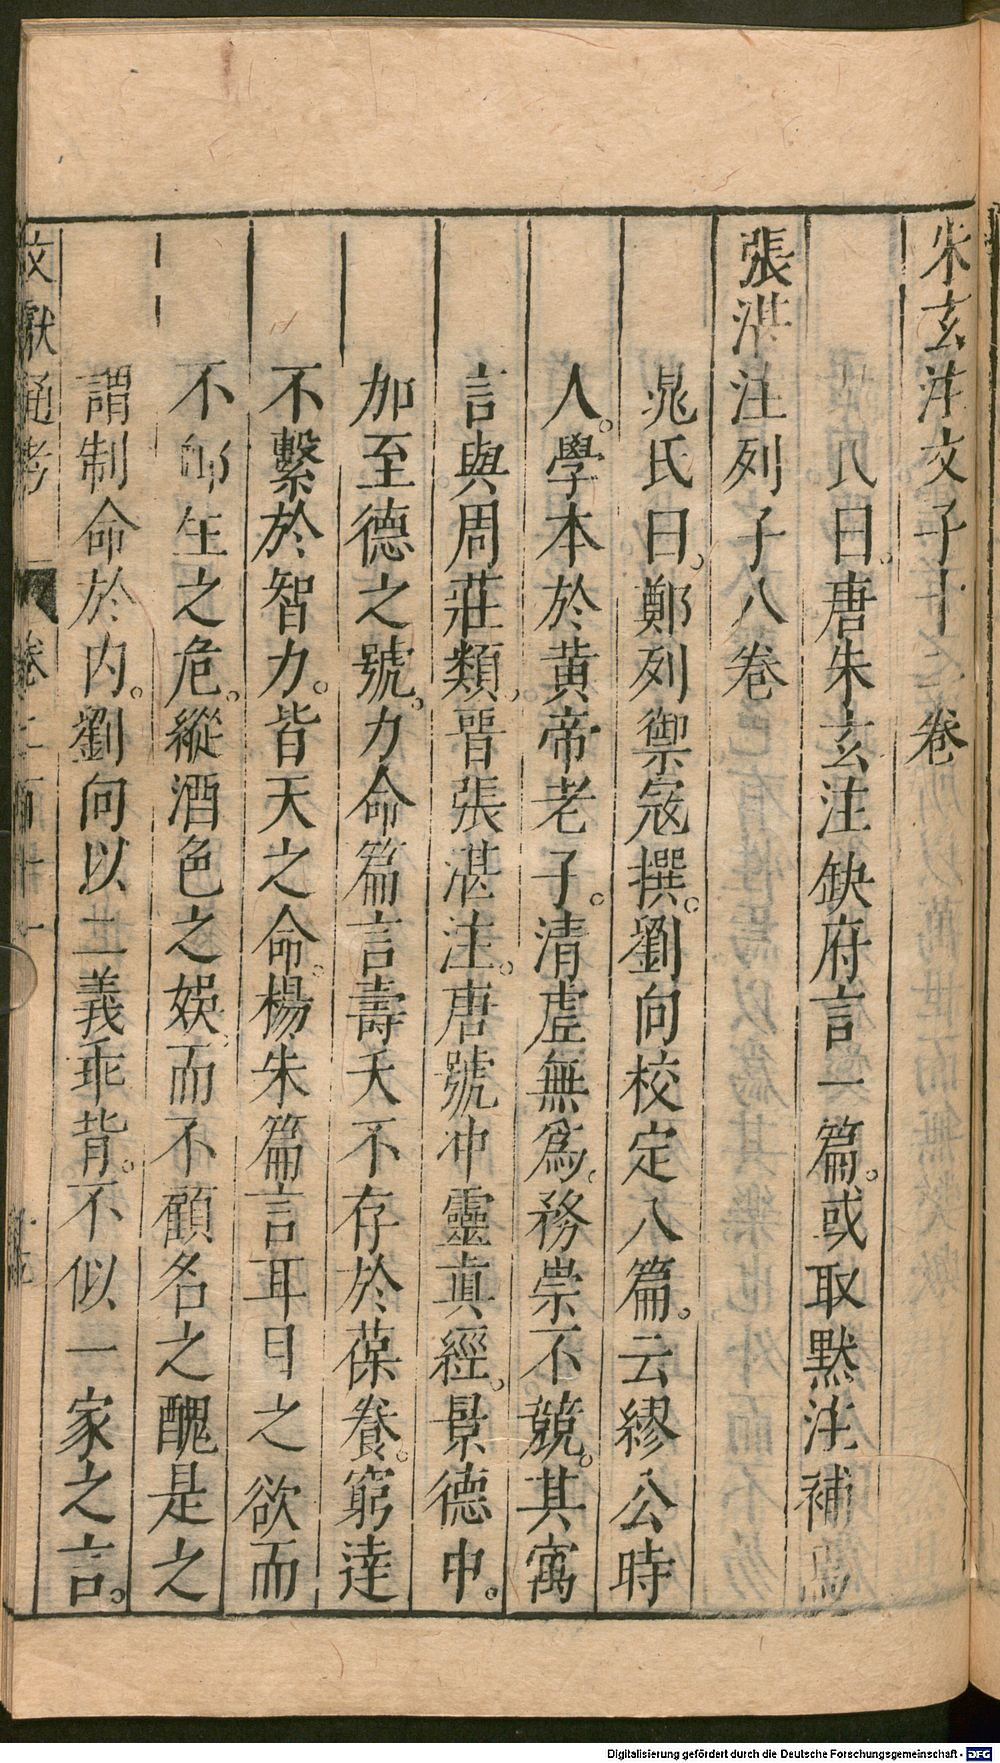 朱玄注文子十二卷
晁氏曰。唐朱玄注缺府言一篇。或取默注補焉
張湛注列子八卷
晁氏曰。鄭列禦寇撰。劉向校定八篇。云繆公時
人。學本於黃帝老子。清虛無爲。務崇不競。其寓
言與周莊類。晉張湛注。唐號冲靈眞經。景德中。
加至德之號。力命篇言壽夭不存於葆養。窮達
不繫於智力。皆天之命。楊朱篇言耳目之欲而
不卹生之危。縱酒色之娛。而不顧名之醜是之
謂制命於內。劉向以二義乖背。不似一家之言。
文獻通考 卷二百十一
Digitalisierung gefördert durch die Deutsche Forschungsgemeinschaft - DFG